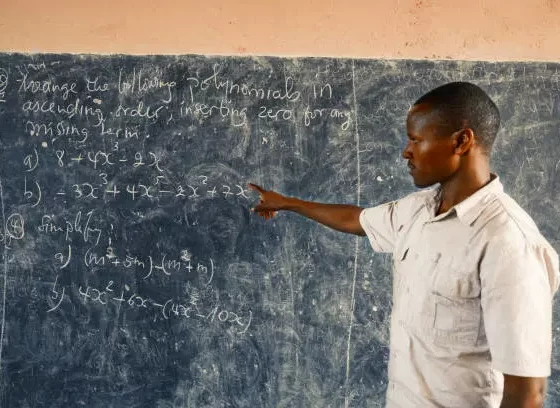 Arrange the following polynomials in
ascending order, inserting zero for any
missing term.
a) 8 + 4x³ - 2x
b) -3x³ + 4x⁵ - 2x² + 7x
④ Simplify;
a) (m² + 5m) - (m² + m)
b) 4x² + 6x - (4x² - 10x)